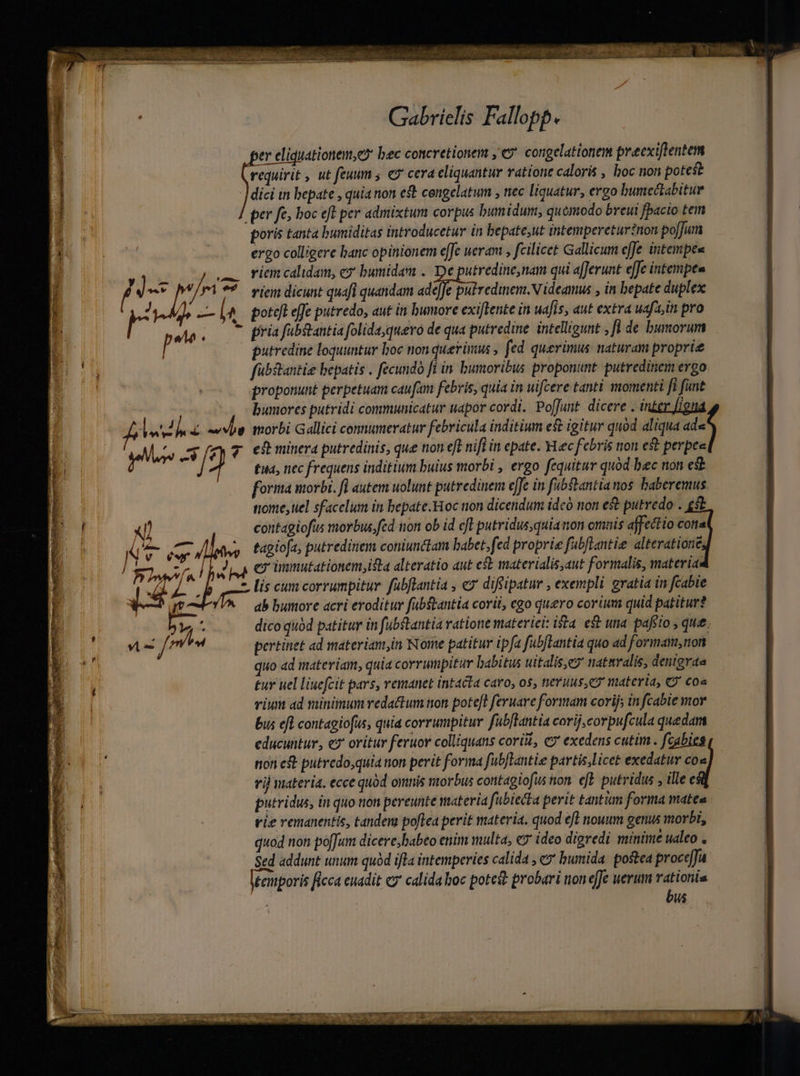 Gabrielis Fallopp.
per eliquationem, & hæc concretionem, & congelationem præexistentem
requirit, ut seuum, & cera eliquantur ratione caloris, hoc non potest
dici in hepate, quia non est congelatum, nec liquatur, ergo humectabitur
per se, hoc est per admixtum corpus humidum, quomodo breui spacio tem
poris tanta humiditas introducetur in hepate, ut intemperetur? non possum
ergo colligere hanc opinionem esse ueram, scilicet Gallicum esse intempe=
riem calidam, & humidam. De putredine, nam qui asserunt esse intempe=
riem dicunt quasi quandam adesse putredinem. Videamus, in hepate duplex
potest esse putredo, aut in humore existente in uasis, aut extra uasa, in pro
pria substantia solida, quæro de qua putredine intelligunt, si de humorum
putredine loquuntur hoc non quærimus, sed quærimus naturam propriæ
substantiæ hepatis. secundò si in humoribus proponunt putredinem ergo
proponunt perpetuam causam febris, quia in uiscere tanti momenti si sunt
humores putridi communicatur uapor cordi. Possunt dicere. inter signa
morbi Gallici connumeratur febricula inditium est igitur quòd aliqua ad=
est minera putredinis, quæ non est nisi in epate. Hæc febris non est perpe=
tua, nec frequens inditium huius morbi, ergo sequitur quòd hæc non est
forma morbi. si autem uolunt putredinem esse in substantia nos haberemus
nome, uel sfacelum in hepate. Hoc non dicendum ideò non est putredo. Est
contagiosus morbus, sed non ob id est putridus, quia non omnis affectio con=
tagiosa, putredinem coniunctam habet, sed propriæ substantiæ alterationē,
& immutationem, ista alteratio aut est materialis, aut formalis, materia=
lis cum corrumpitur substantia, & dissipatur, exempli gratia in scabie
ab humore acri eroditur substantia corii, ego quæro corium quid patitur?
dico quòd patitur in substantia ratione materiei: ista est una passio, quæ
pertinet ad materiam, in Nome patitur ipsa substantia quo ad formam, non
quo ad materiam, quia corrumpitur habitus uitalis, & naturalis, denigra=
tur uel liuescit pars, remanet intacta caro, os, neruus, & materia, & co=
rium ad minimum redactum non potest seruare formam corij; in scabie mor
bus est contagiosus, quia corrumpitur substantia corij, corpuscula quædam
educuntur, & oritur feruor colliquans coriū, & exedens cutim. scabies
non est putredo, quia non perit forma substantiæ partis, licet exedatur co=
rij materia. ecce quòd omnis morbus contagiosus non est putridus, ille est
putridus, in quo non pereunte materia subiecta perit tantùm forma mate=
riæ remanentis, tandem postea perit materia. quod est nouum genus morbi,
quod non possum dicere, habeo enim multa, & ideo digredi minimè ualeo.
Sed addunt unum quòd ista intemperies calida, & humida postea processu
temporis sicca euadit & calida hoc potest probari non esse uerum rationi=
bus